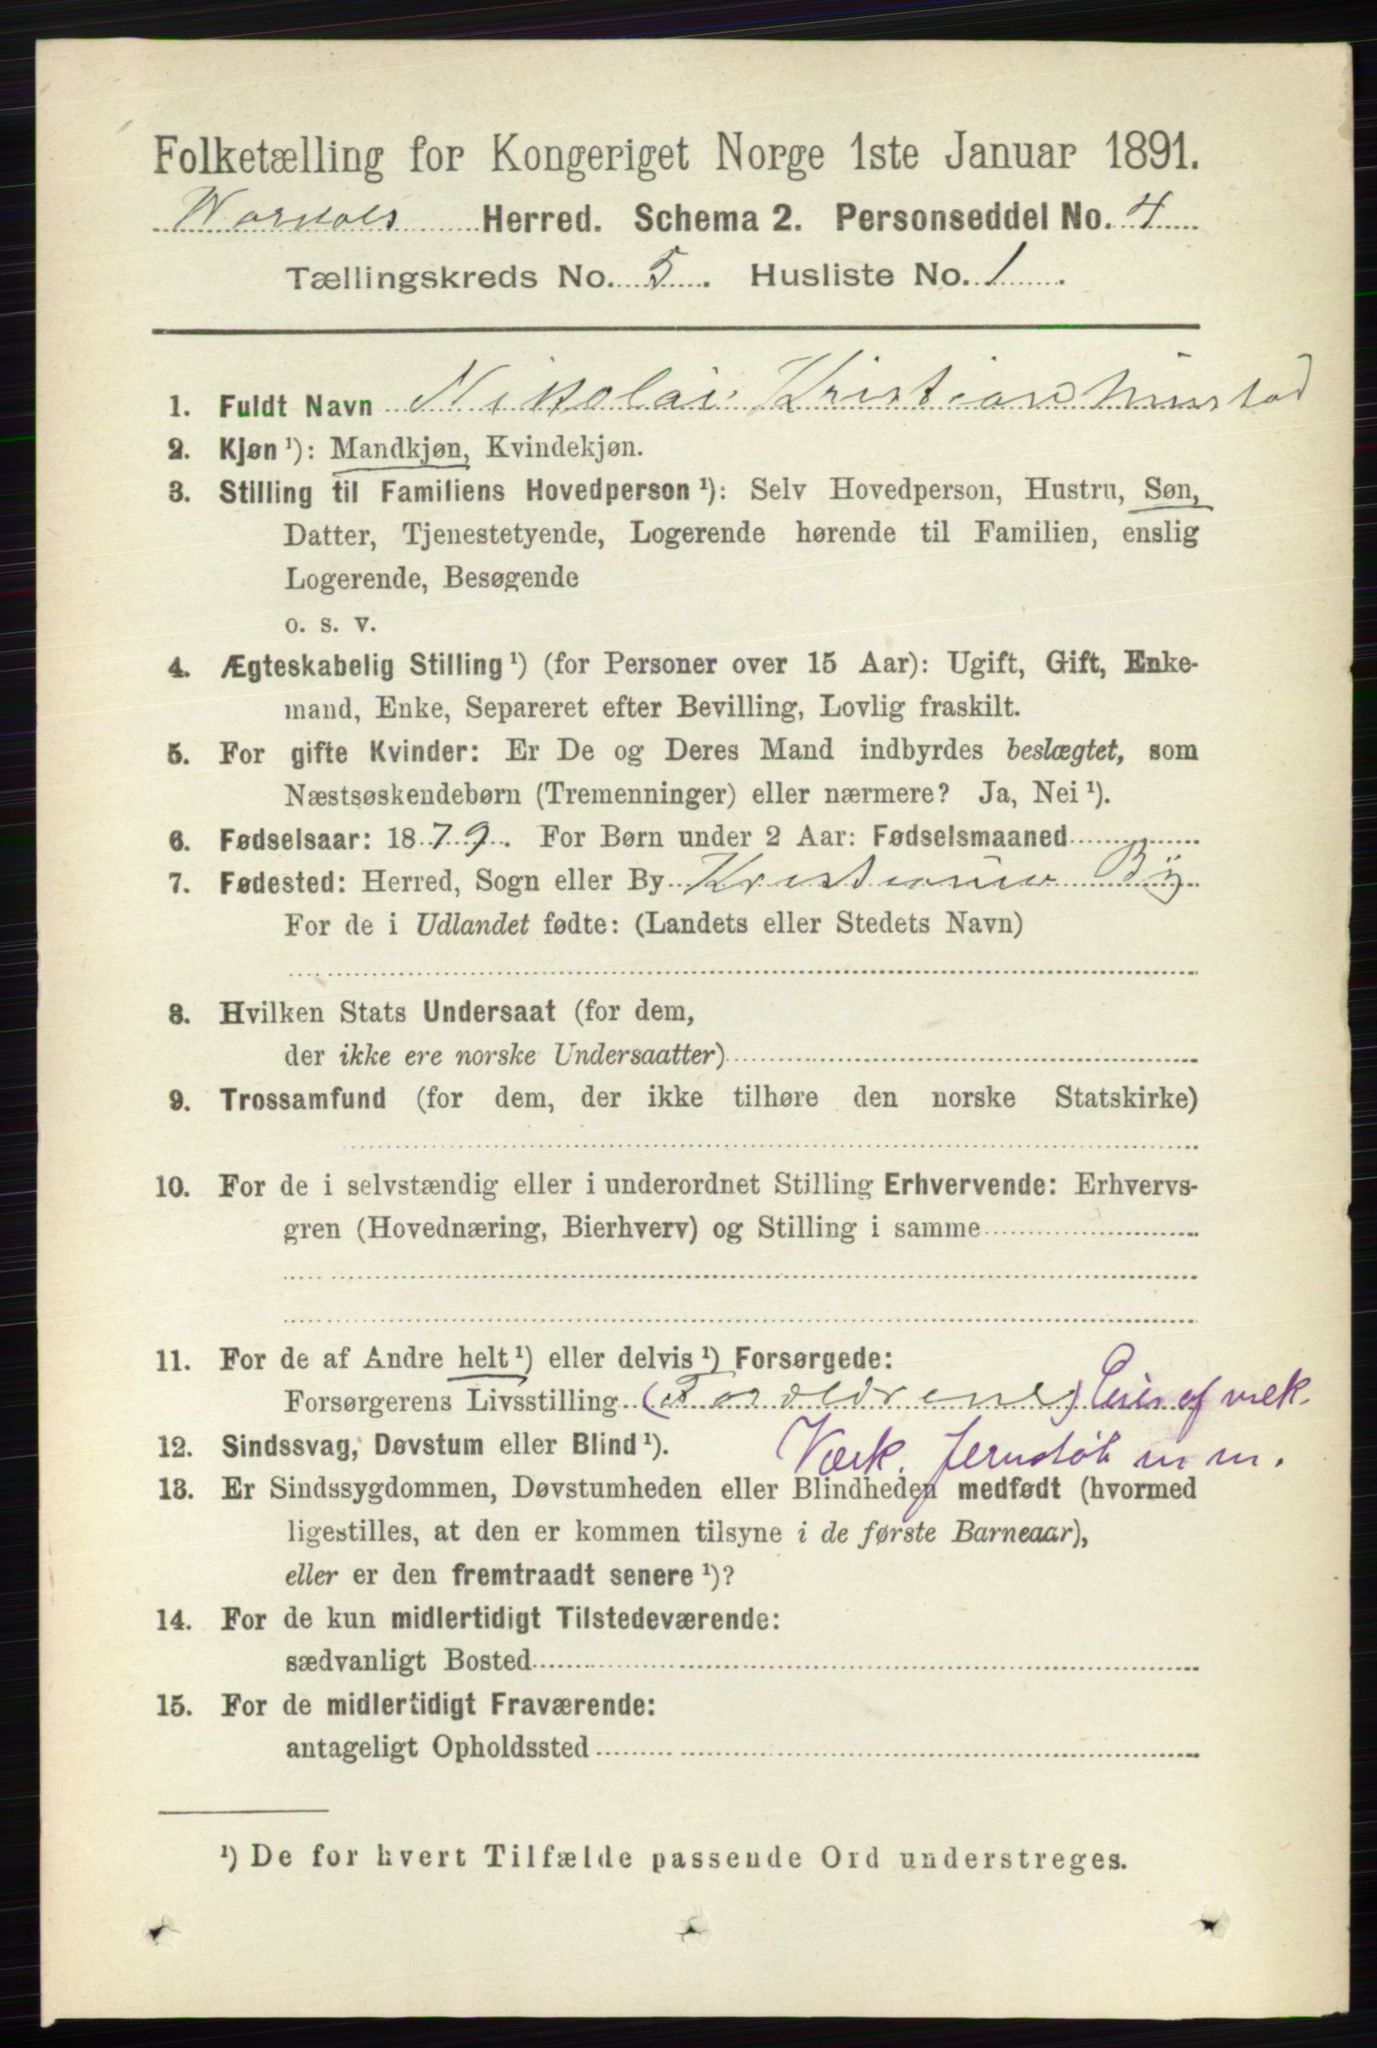 Folketælling for Kongeriget Norge 1ste Januar 1891.
Wardals Herred. Schema 2. Personseddel No. 4
Tællingskreds No. 5. Husliste No. 1.
1. Fuldt Navn Nikolai Kristian Mustad
2. Kjøn ¹): Mandkjøn, Kvindekjøn.
3. Stilling til Familiens Hovedperson ¹): Selv Hovedperson, Hustru, Søn,
Datter, Tjenestetyende, Logerende hørende til Familien, enslig
Logerende, Besøgende
o. s. v.
4. Ægteskabelig Stilling ¹) (for Personer over 15 Aar): Ugift, Gift, Enke-
mand, Enke, Separeret efter Bevilling, Lovlig fraskilt.
5. For gifte Kvinder: Er De og Deres Mand indbyrdes beslægtet, som
Næstsøskendebørn (Tremenninger) eller nærmere? Ja, Nei ¹).
6. Fødselsaar: 1879. For Børn under 2 Aar: Fødselsmaaned
7. Fødested: Herred, Sogn eller By Kristiania By
For de i Udlandet fødte: (Landets eller Stedets Navn)
8. Hvilken Stats Undersaat (for dem,
der ikke ere norske Undersaatter)
9. Trossamfund (for dem, der ikke tilhøre den norske Statskirke)
10. For de i selvstændig eller i underordnet Stilling Erhvervende: Erhvervs-
gren (Hovednæring, Bierhverv) og Stilling i samme
11. For de af Andre helt ¹) eller delvis ¹) Forsørgede:
Forsørgerens Livsstilling (Forældrene) Eier af mek.
12. Sindssvag, Døvstum eller Blind ¹). Værk. Jernstøb m m.
13. Er Sindssygdommen, Døvstumheden eller Blindheden medfødt (hvormed
ligestilles, at den er kommen tilsyne i de første Barneaar),
eller er den fremtraadt senere ¹)?
14. For de kun midlertidigt Tilstedeværende:
sædvanligt Bosted
15. For de midlertidigt Fraværende:
antageligt Opholdssted
¹) De for hvert Tilfælde passende Ord understreges.